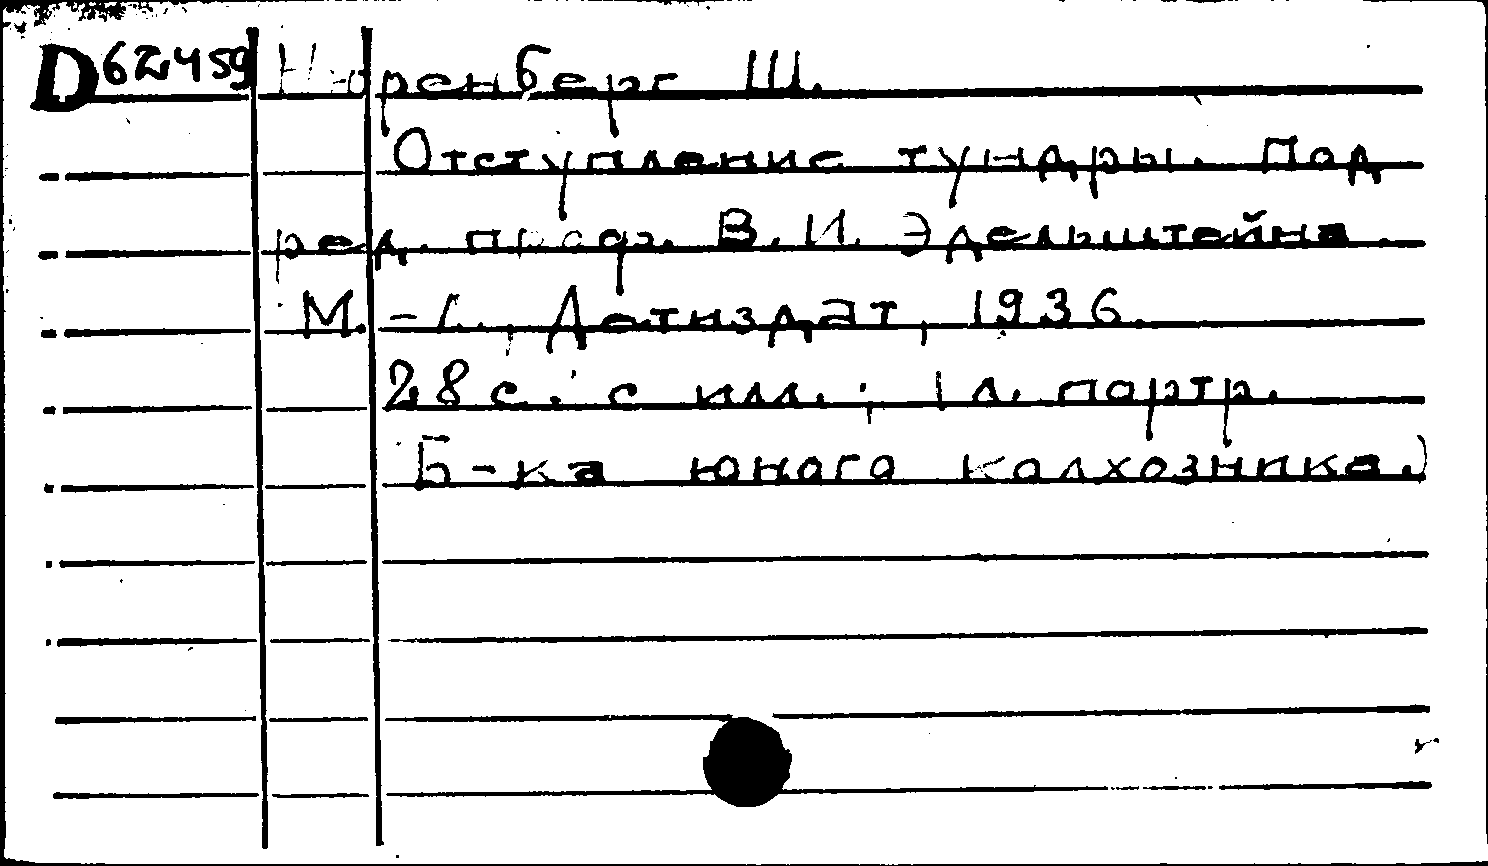 D62459 Нюренберг Ш.
Отступление тундры. Под
ред. проф. В. И. Эдельштейна.
М.-Л., Детиздат, 1936.
28 с. с илл.; 1 л. портр.
Б-ка юного колхозника.)